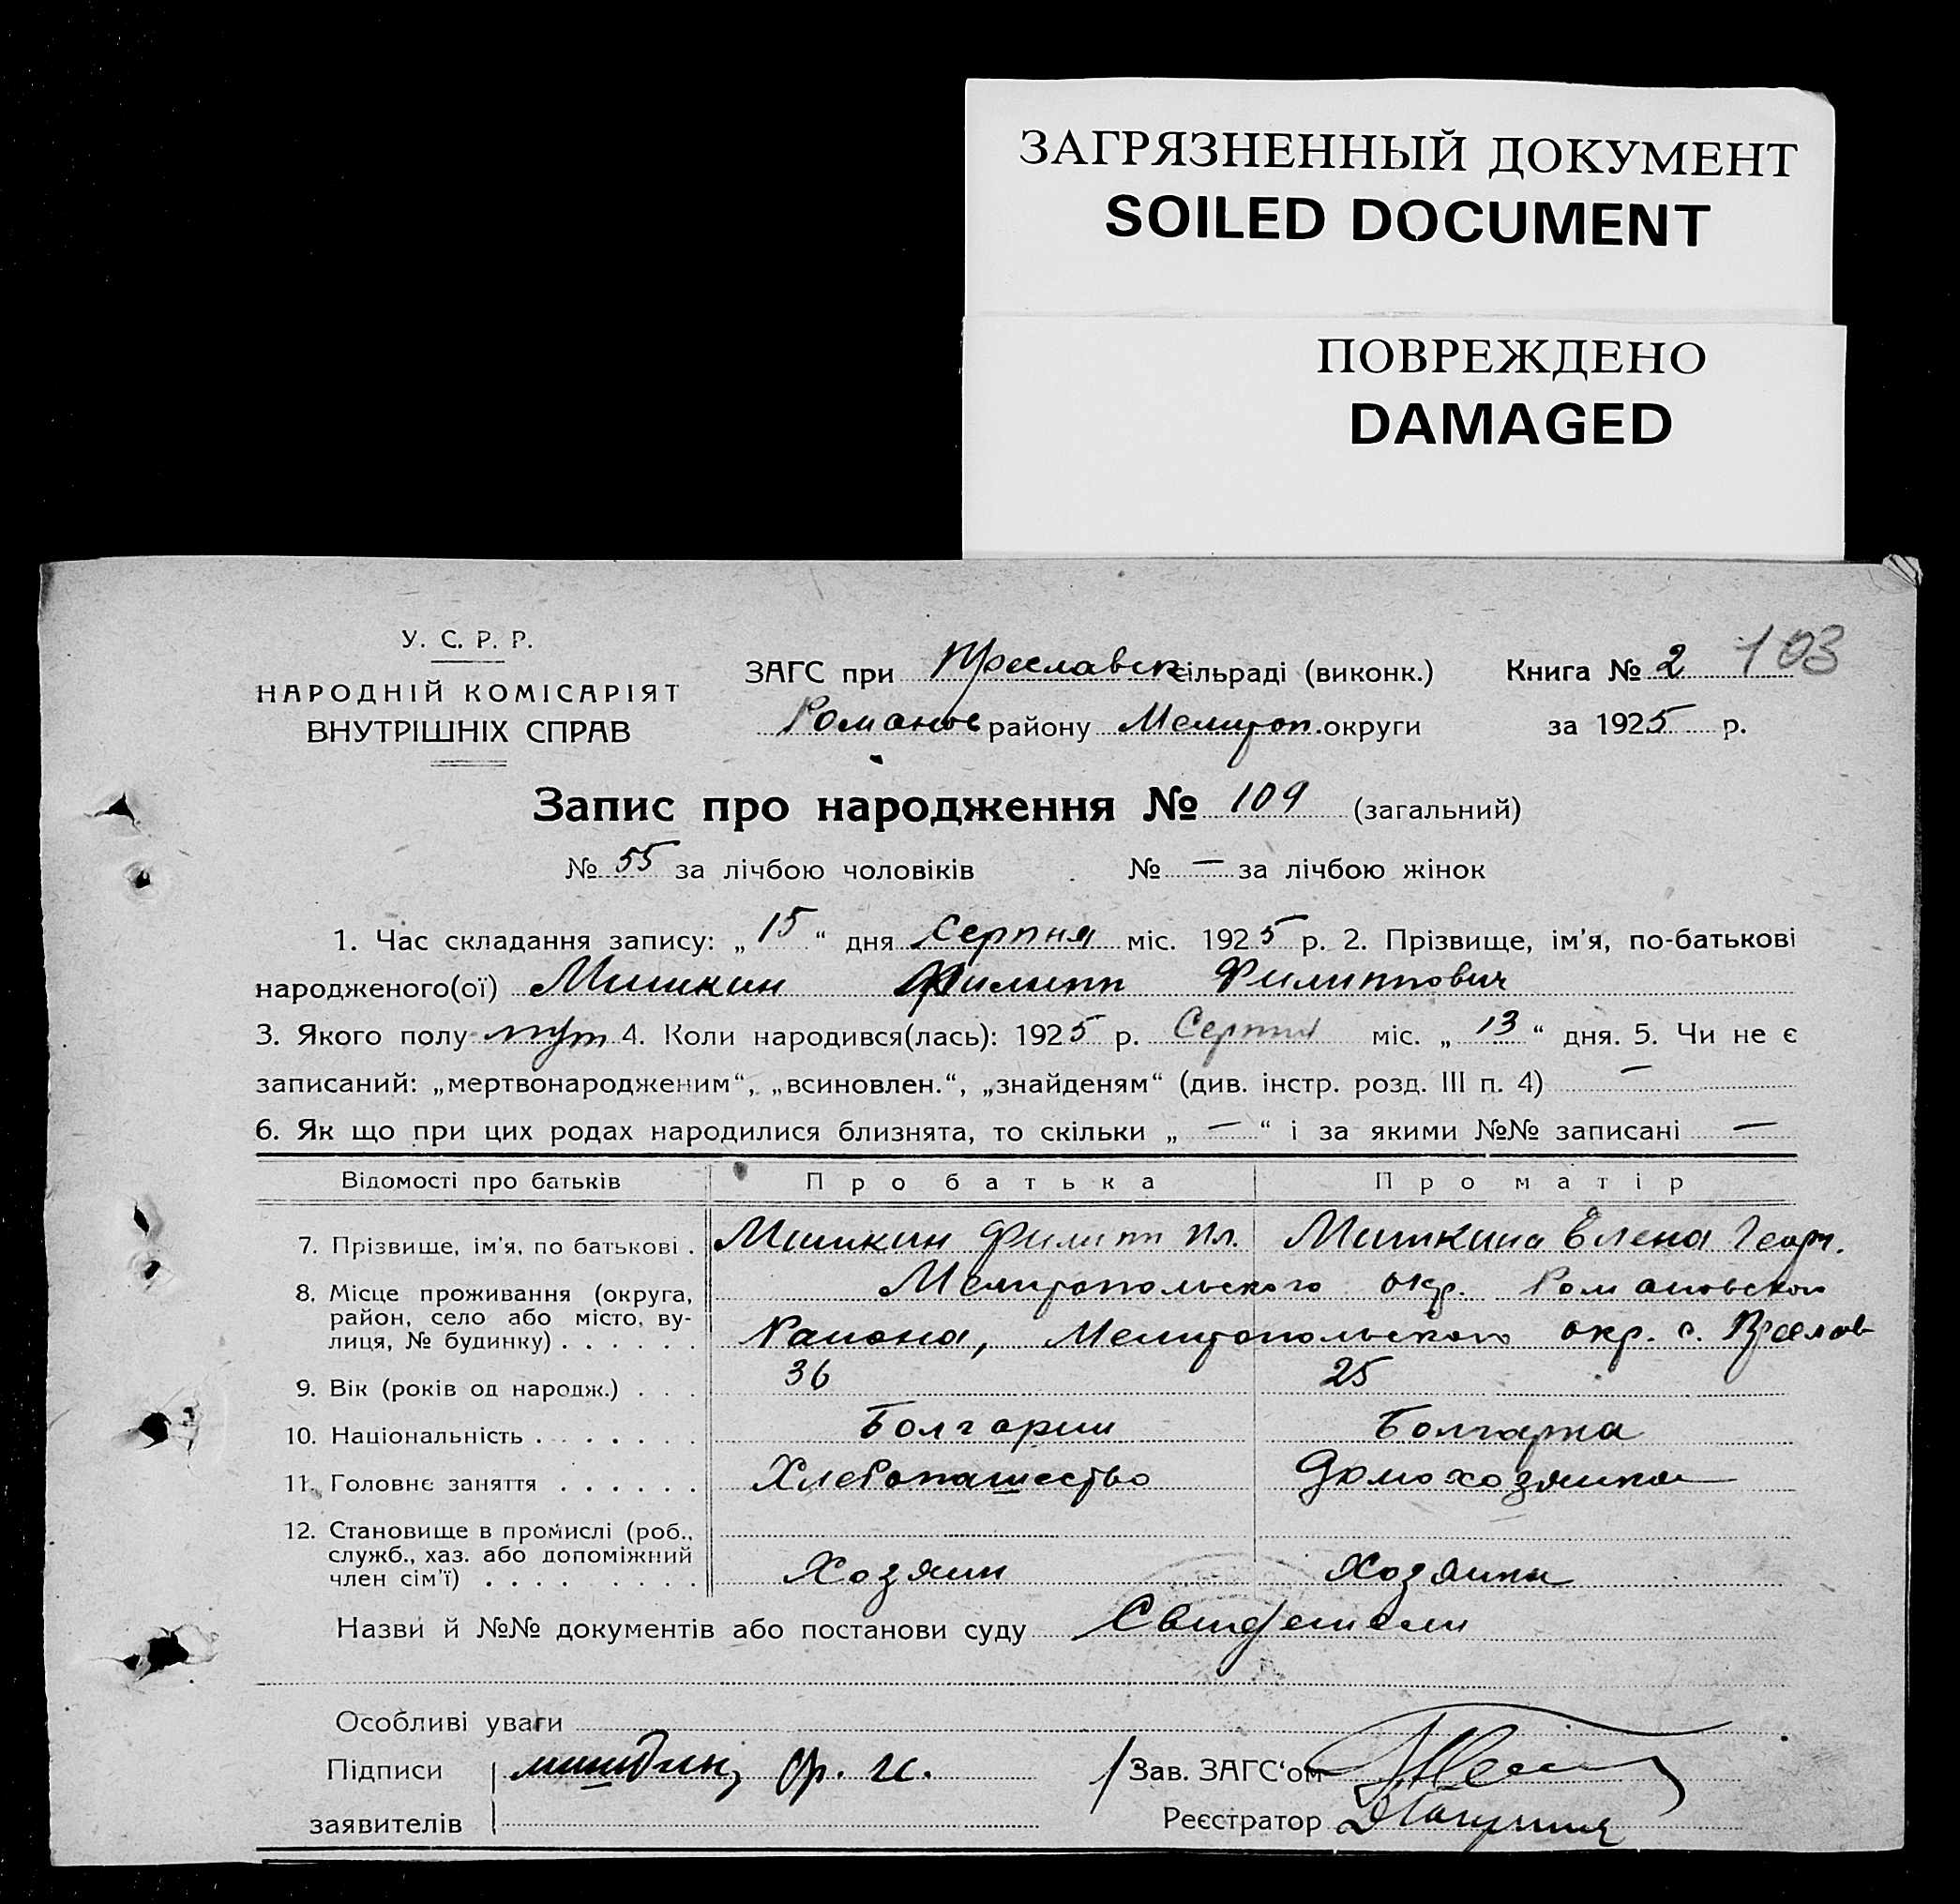 ЗАГРЯЗНЕННЫЙ ДОКУМЕНТ
SOILED DOCUMENT
ПОВРЕЖДЕНО
DAMAGED
103
У. С. Р. Р.
НАРОДНІЙ КОМІСАРІЯТ
ВНУТРІШНІХ СПРАВ
ЗАГС при Преславск сільраді (виконк.)
Романов району Мелитоп. округи
Книга № 2
за 1925 р.
Запис про народження № 109 (загальний)
№ 55 за лічбою чоловіків № — за лічбою жінок
1. Час складання запису: „ 15 “ дня Серпня міс. 1925 р. 2. Прізвище, ім'я, по-батькові
народженого(ої) Мишкин Филипп Филиппович
3. Якого полу муж 4. Коли народився(лась): 1925 р. Серпня міс. „ 13 “ дня. 5. Чи не є
записаний: „мертвонародженим“, „всиновлен.“, „знайденям“ (див. інстр. розд. III п. 4) —
6. Як що при цих родах народилися близнята, то скільки „ — “ і за якими №№ записані —
Відомості про батьків Про батька Про матір
7. Прізвище, ім'я, по батькові . Мишкин Филипп Ил. Мишкина Елена Георг.
8. Місце проживання (округа, Мелитопольского окр. Романовского
район, село або місто, ву-
лиця, № будинку) . . . . . . Района, Мелитопольского окр. с. Преслав
9. Вік (років од народж.) . . . 36 25
10. Національність . . . . . . . Болгарин Болгарка
11. Головнє заняття . . . . . . Хлебопашество Домохозяйка
12. Становище в промислі (роб.,
служб., хаз. або допоміжний
член сім'ї) . . . . . . . . Хозяин Хозяйка
Назви й №№ документів або постанови суду Свидетели
Особливі уваги
Підписи мишкин, ф. и. Зав. ЗАГС‘ом
заявителів Реєстратор